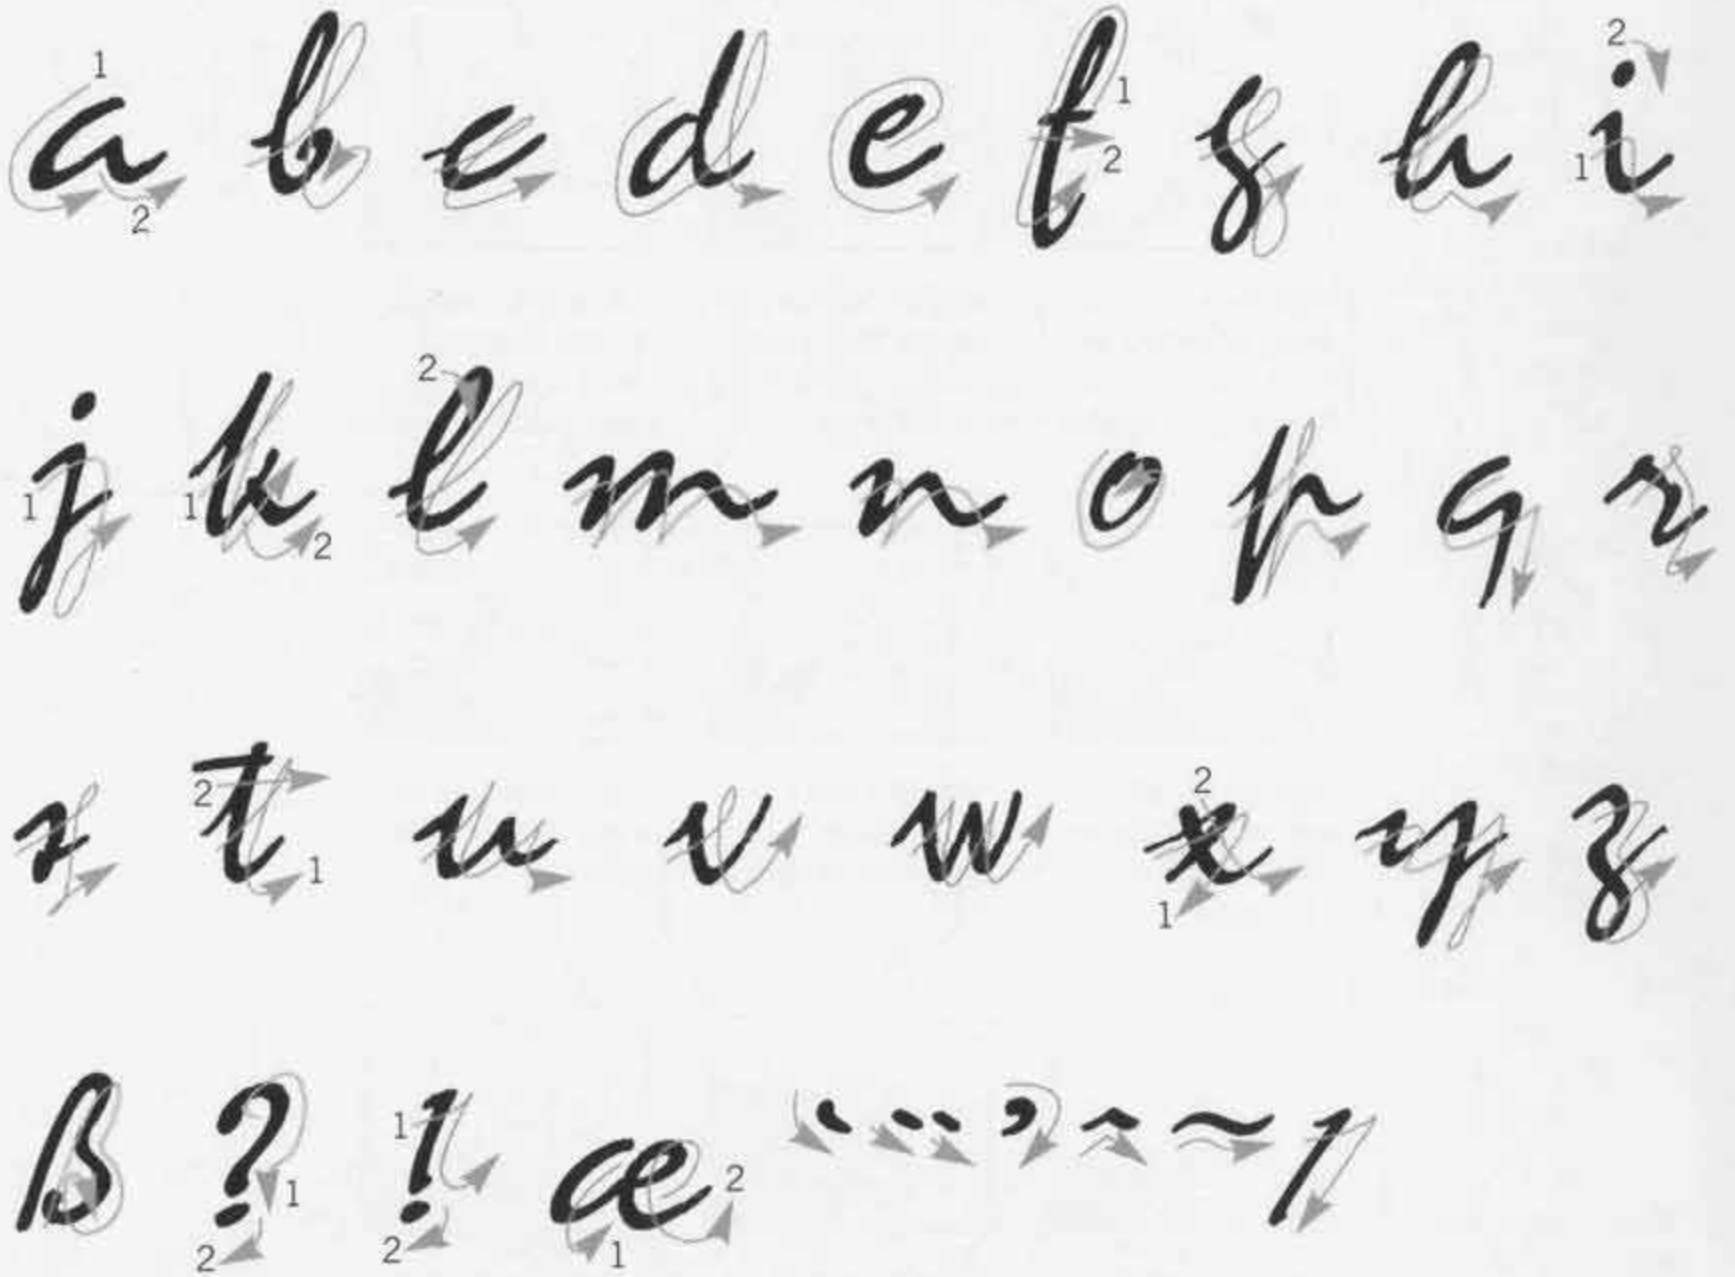 a b c d e f g h i
j k l m n o p q r
s t u v w x y z
ß ? ! æ ` ¨ ’ ^ ~ /